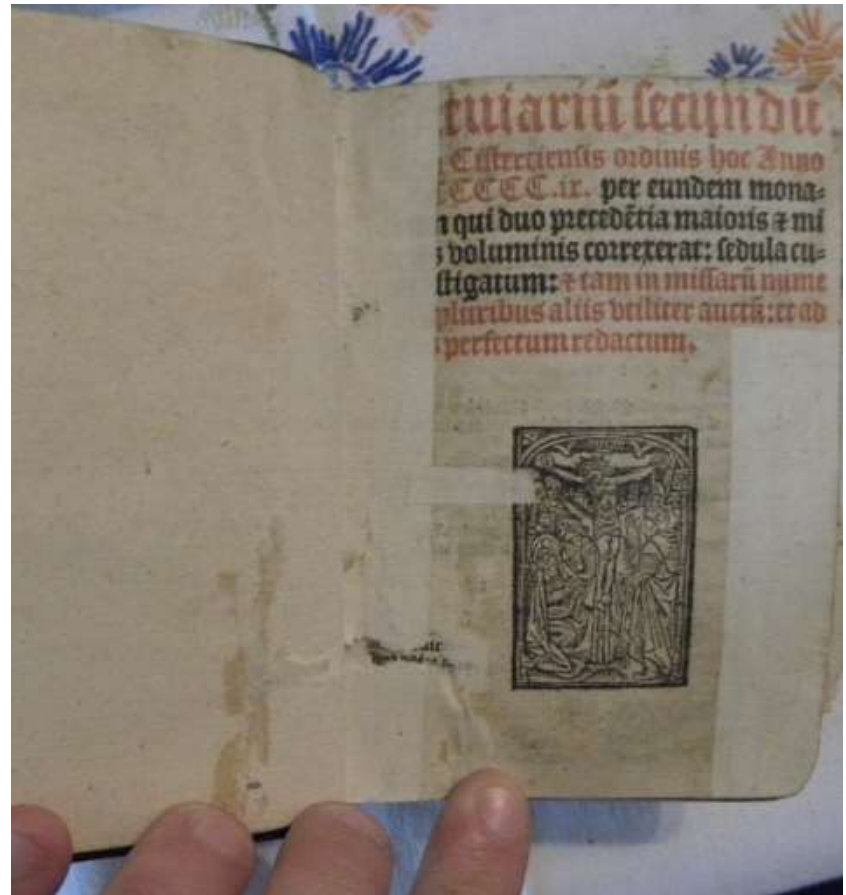 euiariū secundū
Cistercieñsis ordinis hoc Anno
CCCCC.ix. per eundem mona=
n qui duo precedētia maioris ⁊ mi
s voluminis correxerat: sedula cu=
stigatum: ⁊ tam in missarū nume
pluribus aliis vtiliter auctū: et ad
perfectum redactum.